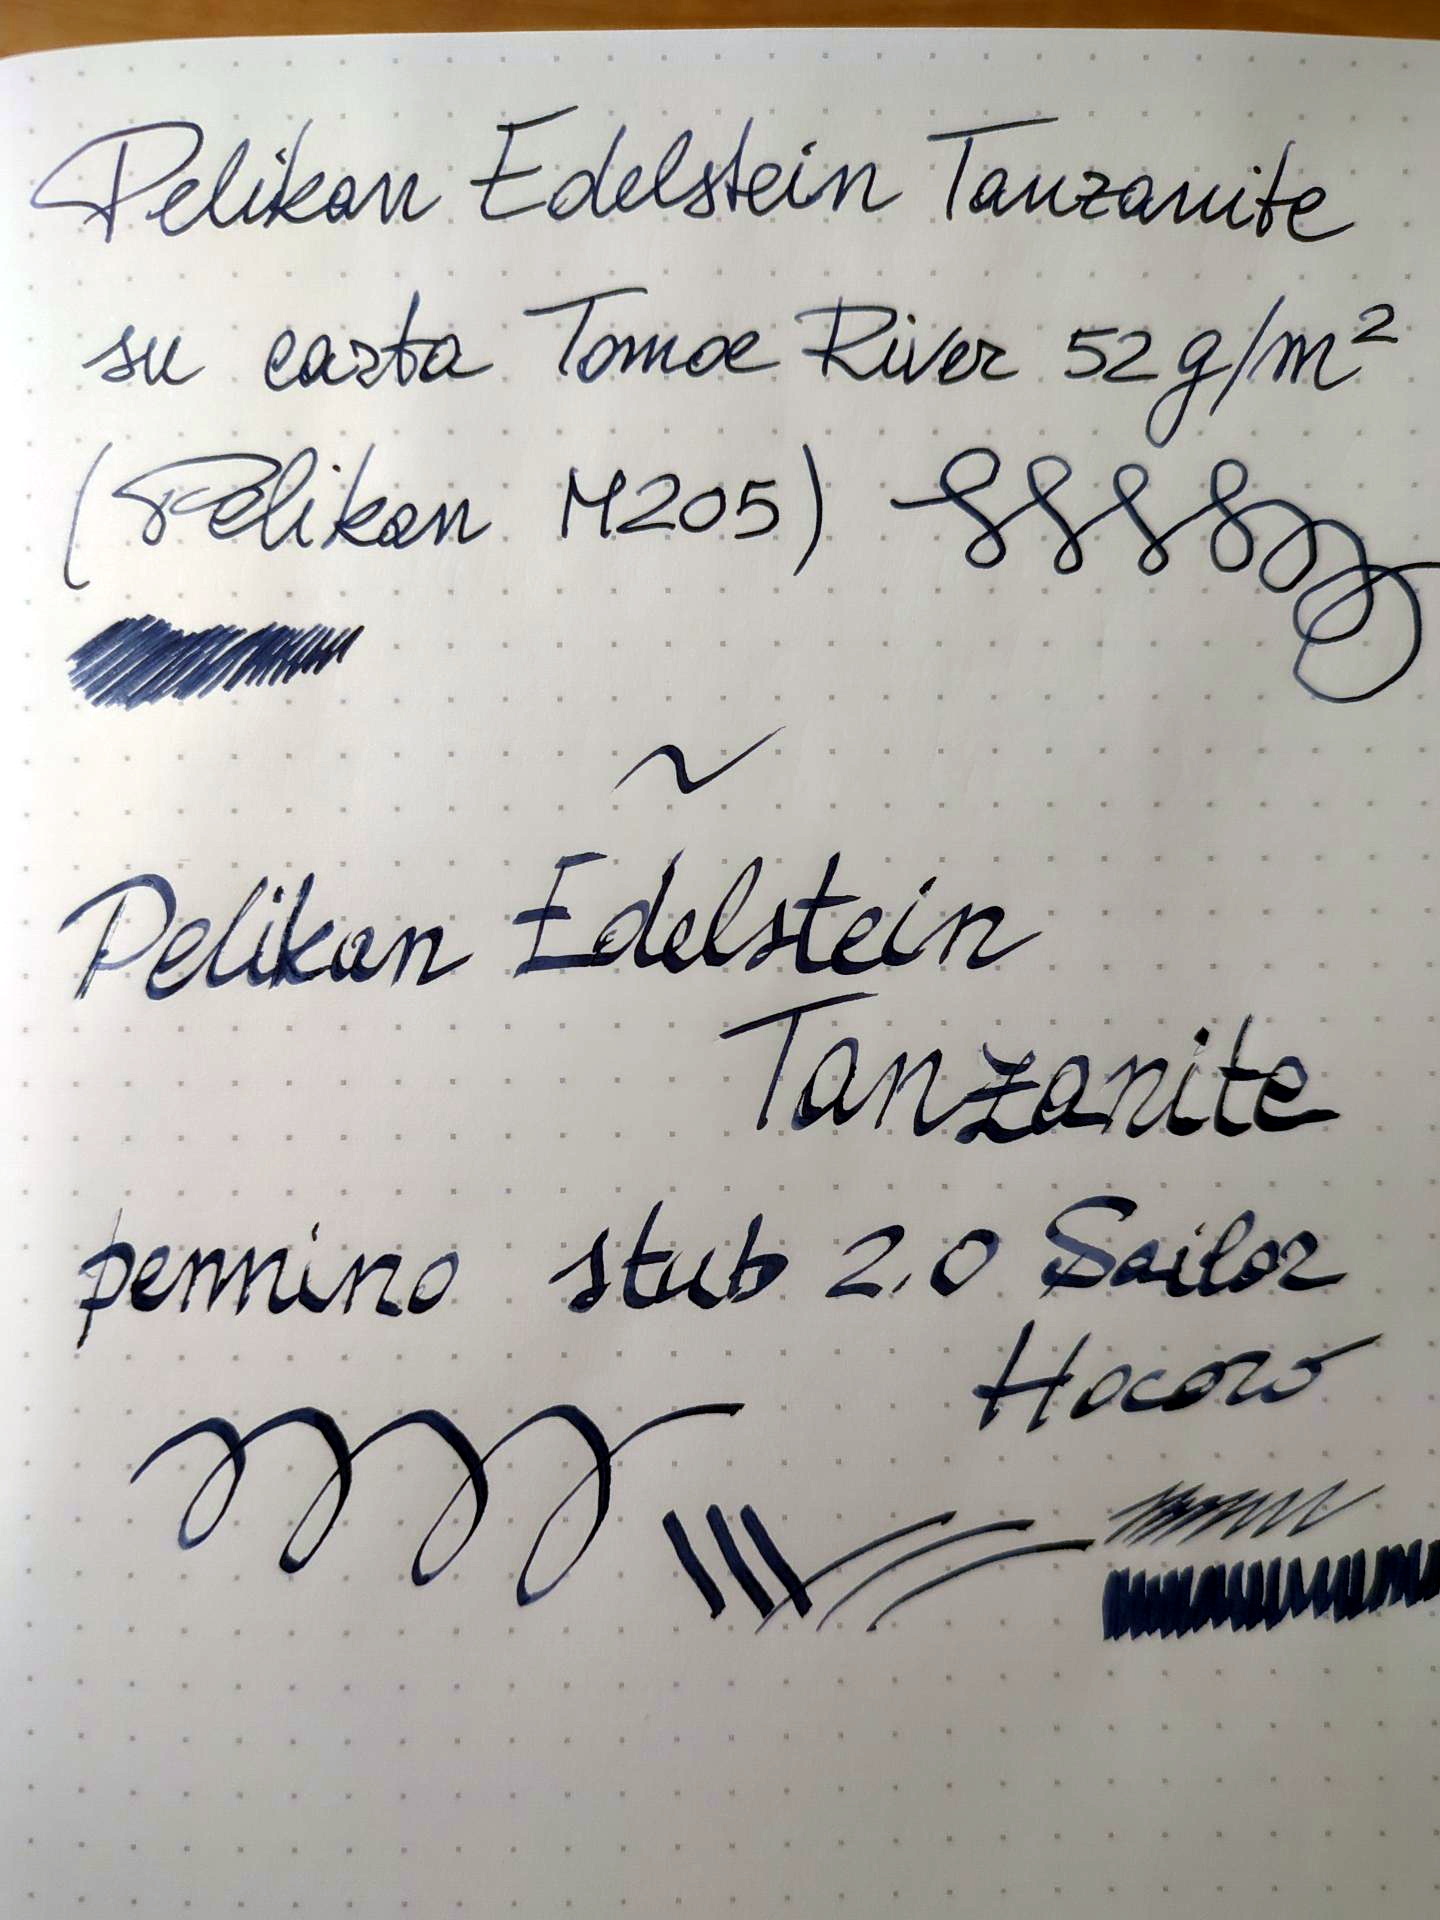 Pelikan Edelstein Tanzanite
su carta Tomoe River 52g/m²
(Pelikan M205)
~
Pelikan Edelstein
Tanzanite
pennino stub 2.0 Sailor
Hocoro